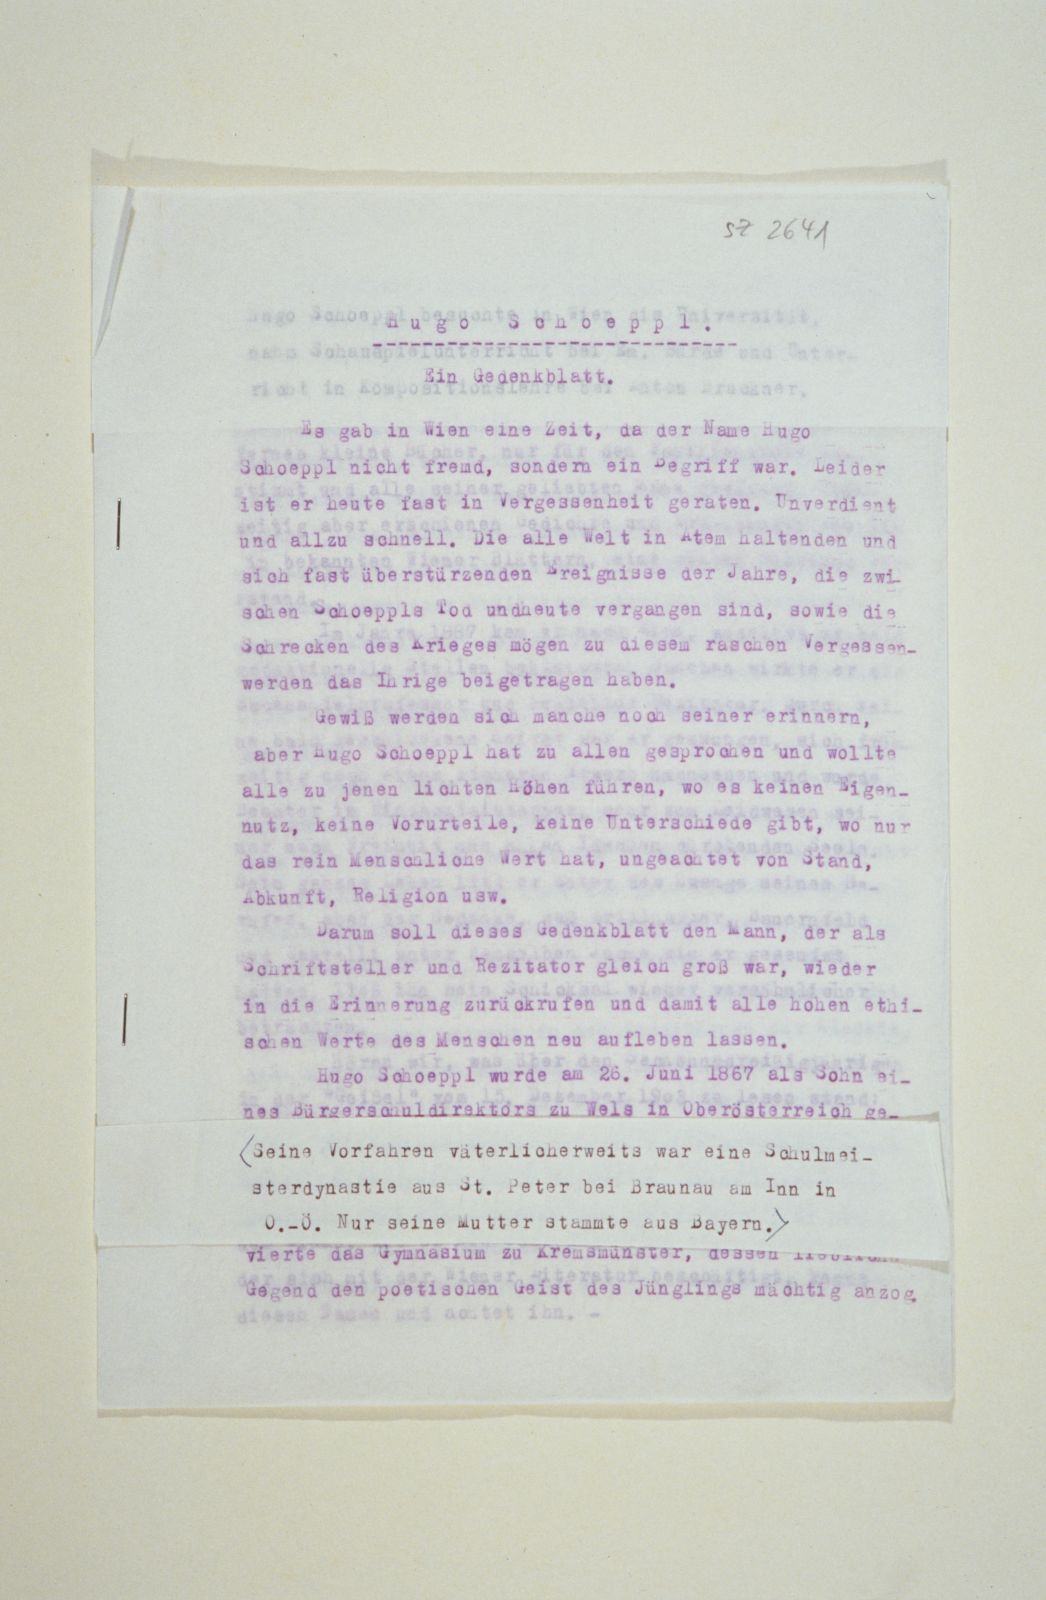 SZ 2641
Hugo Schoeppl.
Ein Gedenkblatt.
Es gab in Wien eine Zeit, da der Name Hugo
Schoeppl nicht fremd, sondern ein Begriff war. Leider
ist er heute fast in Vergessenheit geraten. Unverdient
und allzu schnell. Die alle Welt in Atem haltenden und
sich fast überstürzenden Ereignisse der Jahre, die zwi-
schen Schoeppls Tod undheute vergangen sind, sowie die
Schrecken des Krieges mögen zu diesem raschen Vergessen-
werden das Ihrige beigetragen haben.
Gewiß werden sich manche noch seiner erinnern,
aber Hugo Schoeppl hat zu allen gesprochen und wollte
alle zu jenen lichten Höhen führen, wo es keinen Eigen-
nutz, keine Vorurteile, keine Unterschiede gibt, wo nur
das rein Menschliche Wert hat, ungeachtet von Stand,
Abkunft, Religion usw.
Darum soll dieses Gedenkblatt den Mann, der als
Schriftsteller und Rezitator gleich groß war, wieder
in die Erinnerung zurückrufen und damit alle hohen ethi-
schen Werte des Menschen neu aufleben lassen.
Hugo Schoeppl wurde am 26. Juni 1867 als Sohn ei-
nes Bürgerschuldirektors zu Wels in Oberösterreich ge-
(Seine Vorfahren väterlicherweits war eine Schulmei-
sterdynastie aus St. Peter bei Braunau am Inn in
O.-Ö. Nur seine Mutter stammte aus Bayern.)
vierte das Gymnasium zu Kremsmünster, dessen
Gegend den poetischen Geist des Jünglings mächtig anzog.